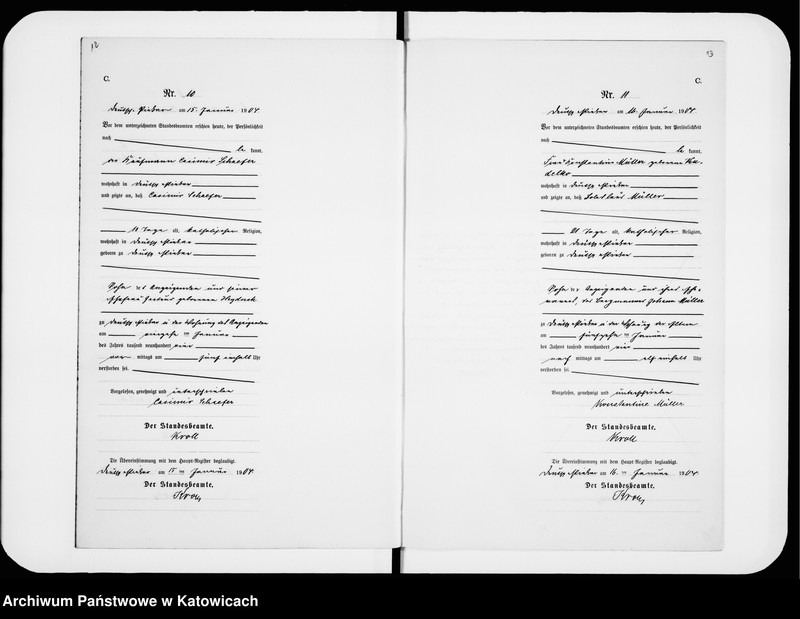 12
C.
Nr. 10
am 15. Januar 1904
Vor dem unterzeichneten Standesbeamten erschien heute, der Persönlichkeit
nach
kannt,
der Kaufmann Casimir Schaefer
wohnhaft in Deutsch
und zeigte an, daß Casimir Schaefer
11 Tage alt, katholischer Religion,
wohnhaft in Deutsch
geboren zu Deutsch
Sohn des Anzeigenden und seiner
Ehefrau geborenen
zu Deutsch in der Wohnung des Anzeigenden
am ten Januar
des Jahres tausend neunhundert vier
vor mittags um fünf einhalb Uhr
verstorben sei.
Vorgelesen, genehmigt und unterschrieben
Casimir Schaefer
Der Standesbeamte.
Kroll
Die Übereinstimmung mit dem Haupt-Register beglaubigt.
Deutsch am 15 ten Januar 1904
Der Standesbeamte.
Kroll
13
C.
Nr. 11
Deutsch am 16. Januar 1904
Vor dem unterzeichneten Standesbeamten erschien heute, der Persönlichkeit
nach
kannt,
Frau Konstantine Müller geborene
wohnhaft in Deutsch
und zeigte an, daß Müller
21 Tage alt, katholischer Religion,
wohnhaft in Deutsch
geboren zu Deutsch
Sohn der Anzeigenden und ihres Ehe-
mannes, des Bergmannes Johann Müller
zu Deutsch in der Wohnung der Eltern
am fünfzehn ten Januar
des Jahres tausend neunhundert vier
nach mittags um elf einhalb Uhr
verstorben sei.
Vorgelesen, genehmigt und unterschrieben
Konstantine Müller
Der Standesbeamte.
Kroll
Die Übereinstimmung mit dem Haupt-Register beglaubigt.
Deutsch am 16 ten Januar 1904
Der Standesbeamte.
Kroll
Archiwum Państwowe w Katowicach